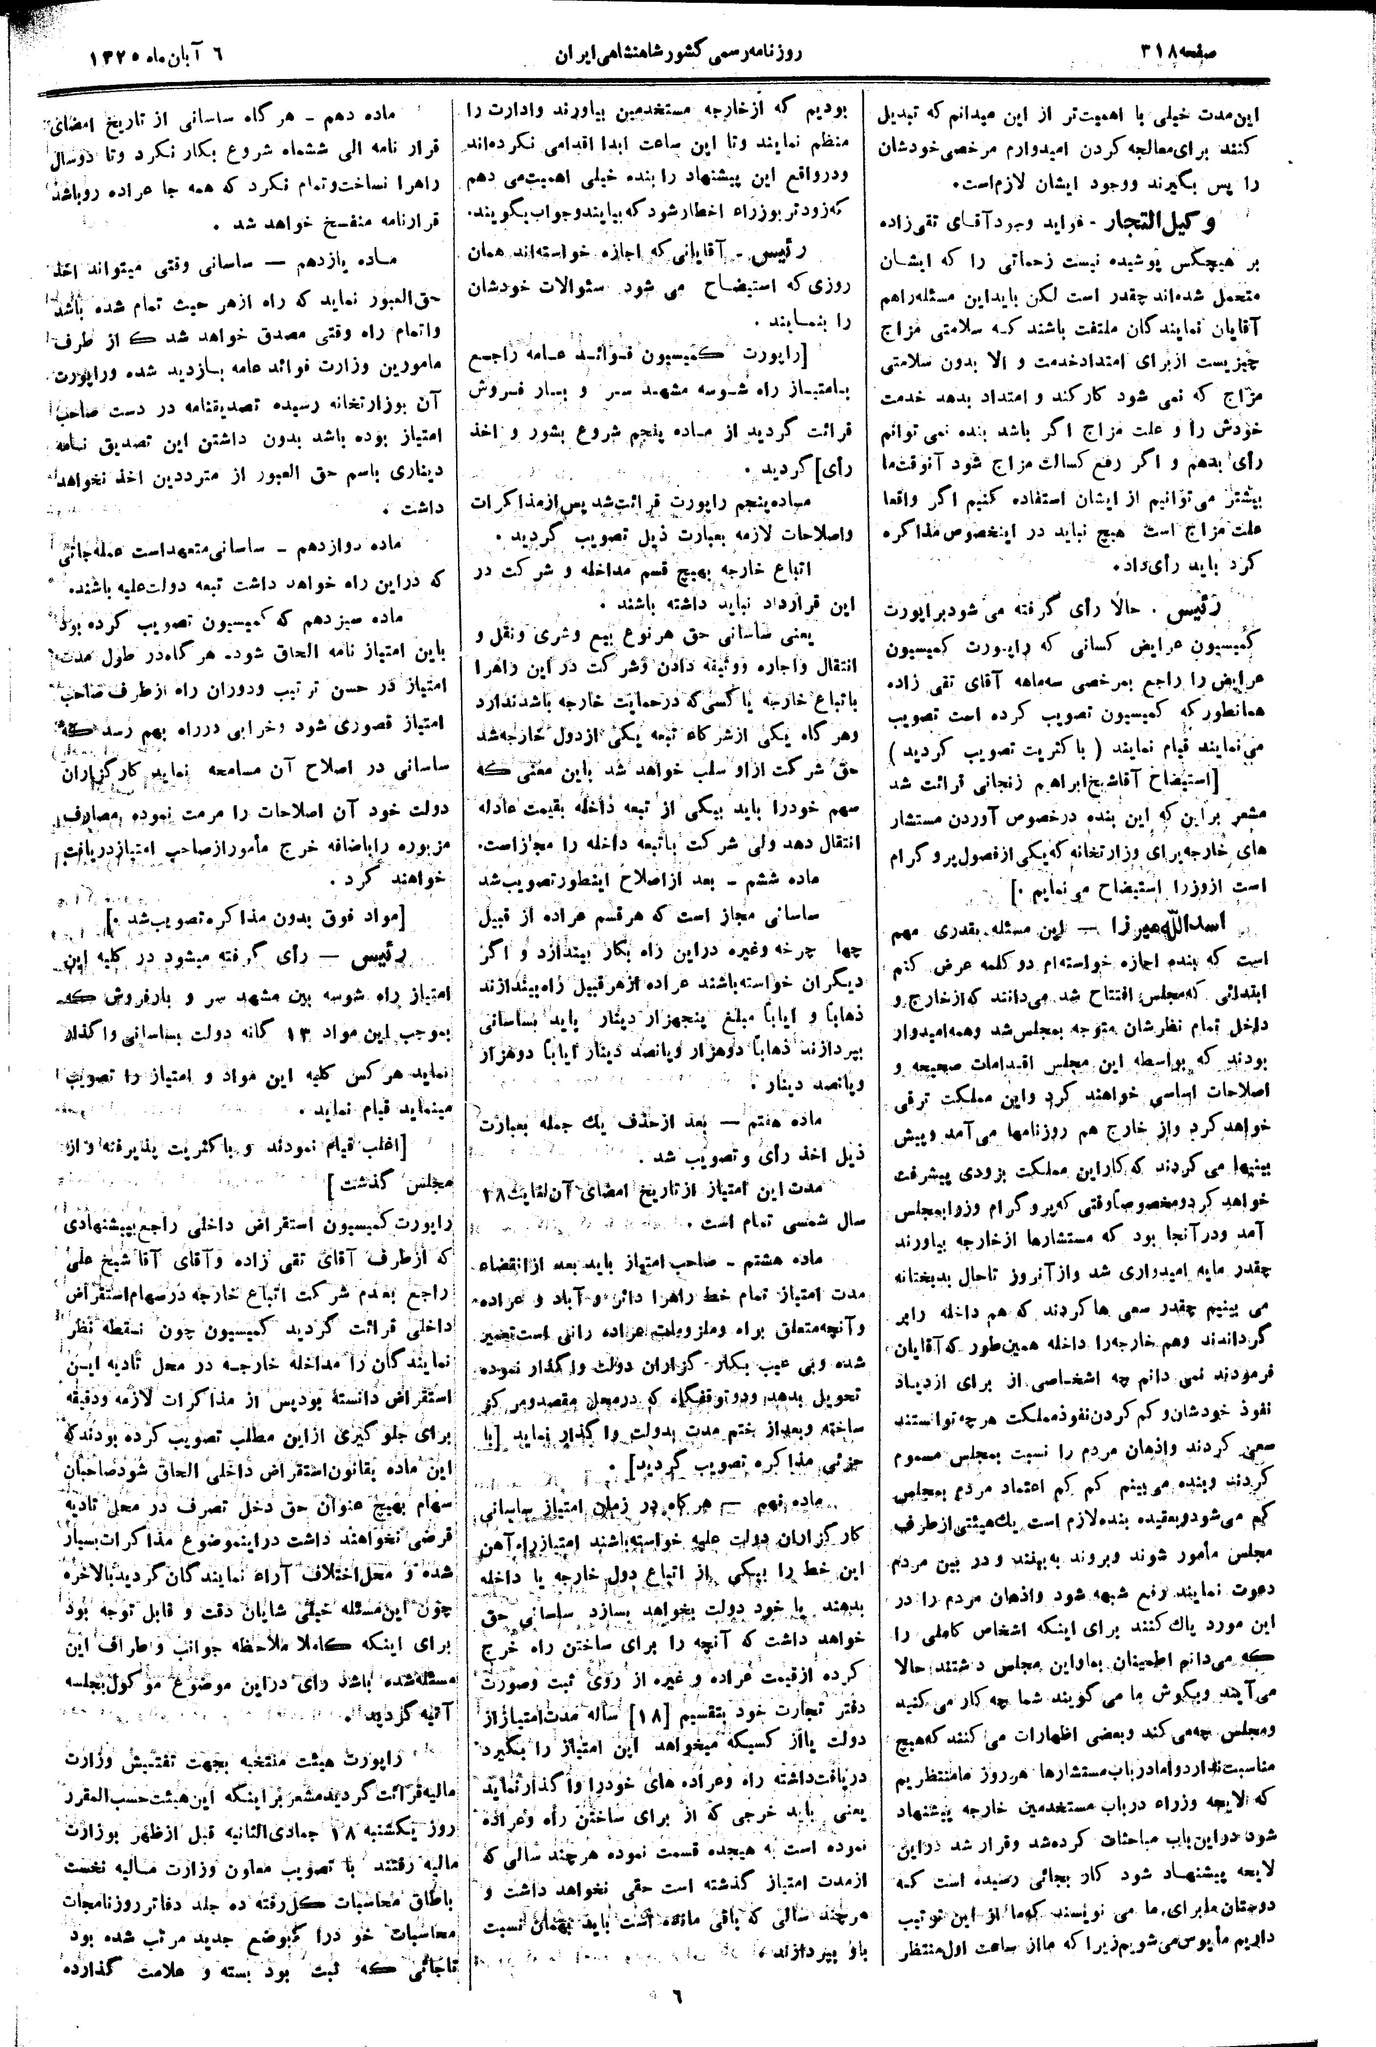 صفحه ۳۱۸
روزنامه رسمی کشور شاهنشاهی ایران
۶ آبان ماه ۱۳۲۵
این مدت خیلی با اهمیت تر از این میدانم که تبدیل
کنند برای معالجه کردن امیدوارم مرخصی خودشان
را پس بگیرند ووجود ایشان لازم است.
وکیل التجار - فواید وجود آقای تقی زاده
بر هیچکس پوشیده نیست زحماتی را که ایشان
متحمل شده‌اند چقدر است لکن باید این مسئله راهم
آقایان نمایندگان ملتفت باشند که سلامتی مزاج
چیزیست از برای امتداد خدمت و الا بدون سلامتی
مزاج که نمی شود کار کند و امتداد بدهد خدمت
خودش را و علت مزاج اگر باشد بنده نمی توانم
رأی بدهم و اگر رفع کسالت مزاج شود آنوقت ما
بیشتر می توانیم از ایشان استفاده کنیم اگر واقعا
علت مزاج است هیچ نباید در اینخصوص مذاکره
کرد باید رأی داد.
رئیس . حالا رأی گرفته می شود براپورت
کمیسیون عرایض کسانی که راپورت کمیسیون
عرایض را راجع بمرخصی سه ماهه آقای تقی زاده
همانطور که کمیسیون تصویب کرده است تصویب
می نمایند قیام نمایند ( باکثریت تصویب گردید )
[استیضاح آقا شیخ ابراهیم زنجانی قرائت شد
مشعر بر این که این بنده در خصوص آوردن مستشار
های خارجه برای وزارتخانه که یکی از فصول پروگرام
است از وزرا استیضاح می نمایم .]
اسدالله میرزا — این مسئله بقدری مهم
است که بنده اجازه خواسته‌ام دو کلمه عرض کنم
ابتدائی که مجلس افتتاح شد می دانند که از خارج و
داخل تمام نظرشان متوجه بمجلس شد وهمه امیدوار
بودند که بواسطه این مجلس اقدامات صحیحه و
اصلاحات اساسی خواهند کرد واین مملکت ترقی
خواهد کرد واز خارج هم روزنامها می آمد و پیش
بینیها می کردند که کار این مملکت بزودی پیشرفت
خواهد کرد و مخصوصاً وقتی که پروگرام وزرا بمجلس
آمد ودر آنجا بود که مستشارها از خارجه بیاورند
چقدر مایه امیدواری شد واز آنروز تاحال بدبختانه
می بینیم چقدر سعی ها کردند که هم داخله را بر
گرداندند وهم خارجه را داخله همین طور که آقایان
فرمودند نمی دانم چه اشخاصی از برای ازدیاد
نفوذ خودشان و کم کردن نفوذ مملکت هر چه توانستند
سعی کردند واذهان مردم را نسبت بمجلس مسموم
کردند وبنده می بینم کم کم اعتماد مردم بمجلس
کم می شود و بعقیده بنده لازم است یک هیئتی از طرف
مجلس مأمور شوند وبروند به بینند و در بین مردم
دعوت نمایند رفع شبهه شود واذهان مردم را در
این مورد پاک کنند برای اینکه اشخاص کاملی را
که می دانم اطمینان بما و این مجلس داشتند حالا
می آیند وبگوش ما می گویند شما چه کار می کنید
ومجلس چه می کند وبعضی اظهارات می کنند که هیچ
مناسبت ندارد واما در باب مستشارها هر روز ما منتظریم
که لایحه وزراء در باب مستخدمین خارجه پیشنهاد
شود در این باب مباحثات کرده شد وقرار شد در این
لایحه پیشنهاد شود کار بجائی رسیده است که
دوستان ما برای ما می نویسند که ما از این ترتیب
داریم مأیوس می شویم زیرا که ما از ساعت اول منتظر
بودیم که از خارجه مستخدمین بیاورند وادارت را
منظم نمایند وتا این ساعت ابدا اقدامی نکرده‌اند
ودرواقع این پیشنهاد را بنده خیلی اهمیت می دهم
که زودتر بوزراء اخطار شود که بیایند وجواب بگویند.
رئیس - آقایانی که اجازه خواسته‌اند همان
روزی که استیضاح می شود سئوالات خودشان
را بنمایند .
[راپورت کمیسیون فوائد عامه راجع
بامتیاز راه شوسه مشهد سر و بار فروش
قرائت گردید از ماده پنجم شروع بشور و اخذ
رأی] گردید .
ماده پنجم راپورت قرائت شد پس از مذاکرات
واصلاحات لازمه بعبارت ذیل تصویب گردید .
اتباع خارجه بهیچ قسم مداخله و شرکت در
این قرارداد نباید داشته باشند .
یعنی ساسانی حق هرنوع بیع وشری ونقل و
انتقال واجاره ووثیقه دادن وشرکت در این راهرا
باتباع خارجه یا کسی که در حمایت خارجه باشد ندارد
وهر گاه یکی از شرکاء تبعه یکی از دول خارجه شد
حق شرکت از او سلب خواهد شد باین معنی که
سهم خودرا باید بیکی از تبعه داخله بقیمت عادله
انتقال دهد ولی شرکت با تبعه داخله را مجاز است.
ماده ششم - بعد از اصلاح اینطور تصویب شد
ساسانی مجاز است که هر قسم عراده از قبیل
چها چرخه وغیره دراین راه بکار بیندازد و اگر
دیگران خواسته باشند عراده از هر قبیل راه بیندازند
ذهاباً و ایاباً مبلغ پنجهزار دینار باید بساسانی
بپردازند ذهاباً دوهزار وپانصد دینار ایاباً دوهزار
وپانصد دینار .
ماده هفتم — بعد از حذف یك جمله بعبارت
ذیل اخذ رأی و تصویب شد .
مدت این امتیاز از تاریخ امضای آن لغایت ۱۸
سال شمسی تمام است .
ماده هشتم - صاحب امتیاز باید بعد از انقضاء
مدت امتیاز تمام خط راهرا دائر و آباد و عراده
و آنچه متعلق براه وملزومات عراده رانی است تعمیر
شده وبی عیب بکار گزاران دولت واگذار نموده
تحویل بدهد ودوتوقفگاه که در محل مقصد ومرکز
ساخته وبعد از ختم مدت بدولت واگذار نماید [با
جزئی مذاکره تصویب گردید] .
ماده نهم — هرگاه در زمان امتیاز ساسانی
کارگزاران دولت علیه خواسته باشند امتیاز راه آهن
این خط را بیکی از اتباع دول خارجه یا داخله
بدهند یا خود دولت بخواهد بسازد ساسانی حق
خواهد داشت که آنچه را برای ساختن راه خرج
کرده از قیمت عراده و غیره از روی ثبت وصورت
دفتر تجارت خود بتقسیم [۱۸] ساله مدت امتیاز از
دولت یا از کسیکه میخواهد این امتیاز را بگیرد
دریافت داشته راه وعراده های خودرا واگذار نماید
یعنی باید خرجی که از برای ساختن راه وعراده
نموده است به هیجده قسمت نموده هرچند سالی که
از مدت امتیاز گذشته است حقی نخواهد داشت و
هرچند سالی که باقی مانده است باید بهمان نسبت
باو بپردازند .
ماده دهم - هر گاه ساسانی از تاریخ امضای
قرار نامه الی ششماه شروع بکار نکرد وتا دوسال
راهرا نساخت وتمام نکرد که همه جا عراده رو باشد
قرارنامه منفسخ خواهد شد .
ماده یازدهم — ساسانی وقتی میتواند اخذ
حق العبور نماید که راه ازهر حیث تمام شده باشد
واتمام راه وقتی مصدق خواهد شد که از طرف
مامورین وزارت فوائد عامه بازدید شده وراپورت
آن بوزارتخانه رسیده تصدیقنامه در دست صاحب
امتیاز بوده باشد بدون داشتن این تصدیق نامه
دیناری باسم حق العبور از مترددین اخذ نخواهد
داشت .
ماده دوازدهم - ساسانی متعهد است عمله جاتی
که دراین راه خواهد داشت تبعه دولت علیه باشند.
ماده سیزدهم که کمیسیون تصویب کرده بود
باین امتیاز نامه الحاق شود. هر گاه در طول مدت
امتیاز در حسن ترتیب ودوران راه از طرف صاحب
امتیاز قصوری شود وخرابی درراه بهم رسد که
ساسانی در اصلاح آن مسامحه نماید کارگزاران
دولت خود آن اصلاحات را مرمت نموده مصارف
مزبوره را باضافه خرج مأمور از صاحب امتیاز دریافت
خواهند کرد .
[مواد فوق بدون مذاکره تصویب شد .]
رئیس — رأی گرفته میشود در کلیه این
امتیاز راه شوسه بین مشهد سر و بارفروش که
بموجب این مواد ۱۳ گانه دولت بساسانی واگذار
نماید هر کس کلیه این مواد و امتیاز را تصویب
مینماید قیام نماید .
[اغلب قیام نمودند و باکثریت پذیرفته و از
مجلس گذشت]
راپورت کمیسیون استقراض داخلی راجع بپیشنهادی
که از طرف آقای تقی زاده و آقای آقا شیخ علی
راجع بعدم شرکت اتباع خارجه در سهام استقراض
داخلی قرائت گردید کمیسیون چون نقطه نظر
نمایندگان را مداخله خارجه در محل تادیه این
استقراض دانسته بود پس از مذاکرات لازمه ودقیقه
برای جلوگیری از این مطلب تصویب کرده بودند که
این ماده بقانون استقراض داخلی الحاق شود صاحبان
سهام بهیچ عنوان حق دخل تصرف در محل تادیه
قرضی نخواهند داشت در اینموضوع مذاکرات بسیار
شده و محل اختلاف آراء نمایندگان گردید بالاخره
چون این مسئله خیلی شایان دقت و قابل توجه بود
برای اینکه کاملا ملاحظه جوانب و اطراف این
مسئله شده باشد رای در این موضوع موکول بجلسه
آتیه گردید .
راپورت هیئت منتخبه بجهت تفتیش وزارت
مالیه قرائت گردید مشعر بر اینکه این هیئت حسب المقرر
روز یکشنبه ۱۸ جمادی الثانیه قبل از ظهر بوزارت
مالیه رفتند با تصویب معاون وزارت مالیه نخست
باطاق محاسبات کل رفته ده جلد دفاتر روزنامجات
محاسبات خو درا که بوضع جدید مرتب شده بود
تاجائی که ثبت بود بسته و علامت گذارده
۶